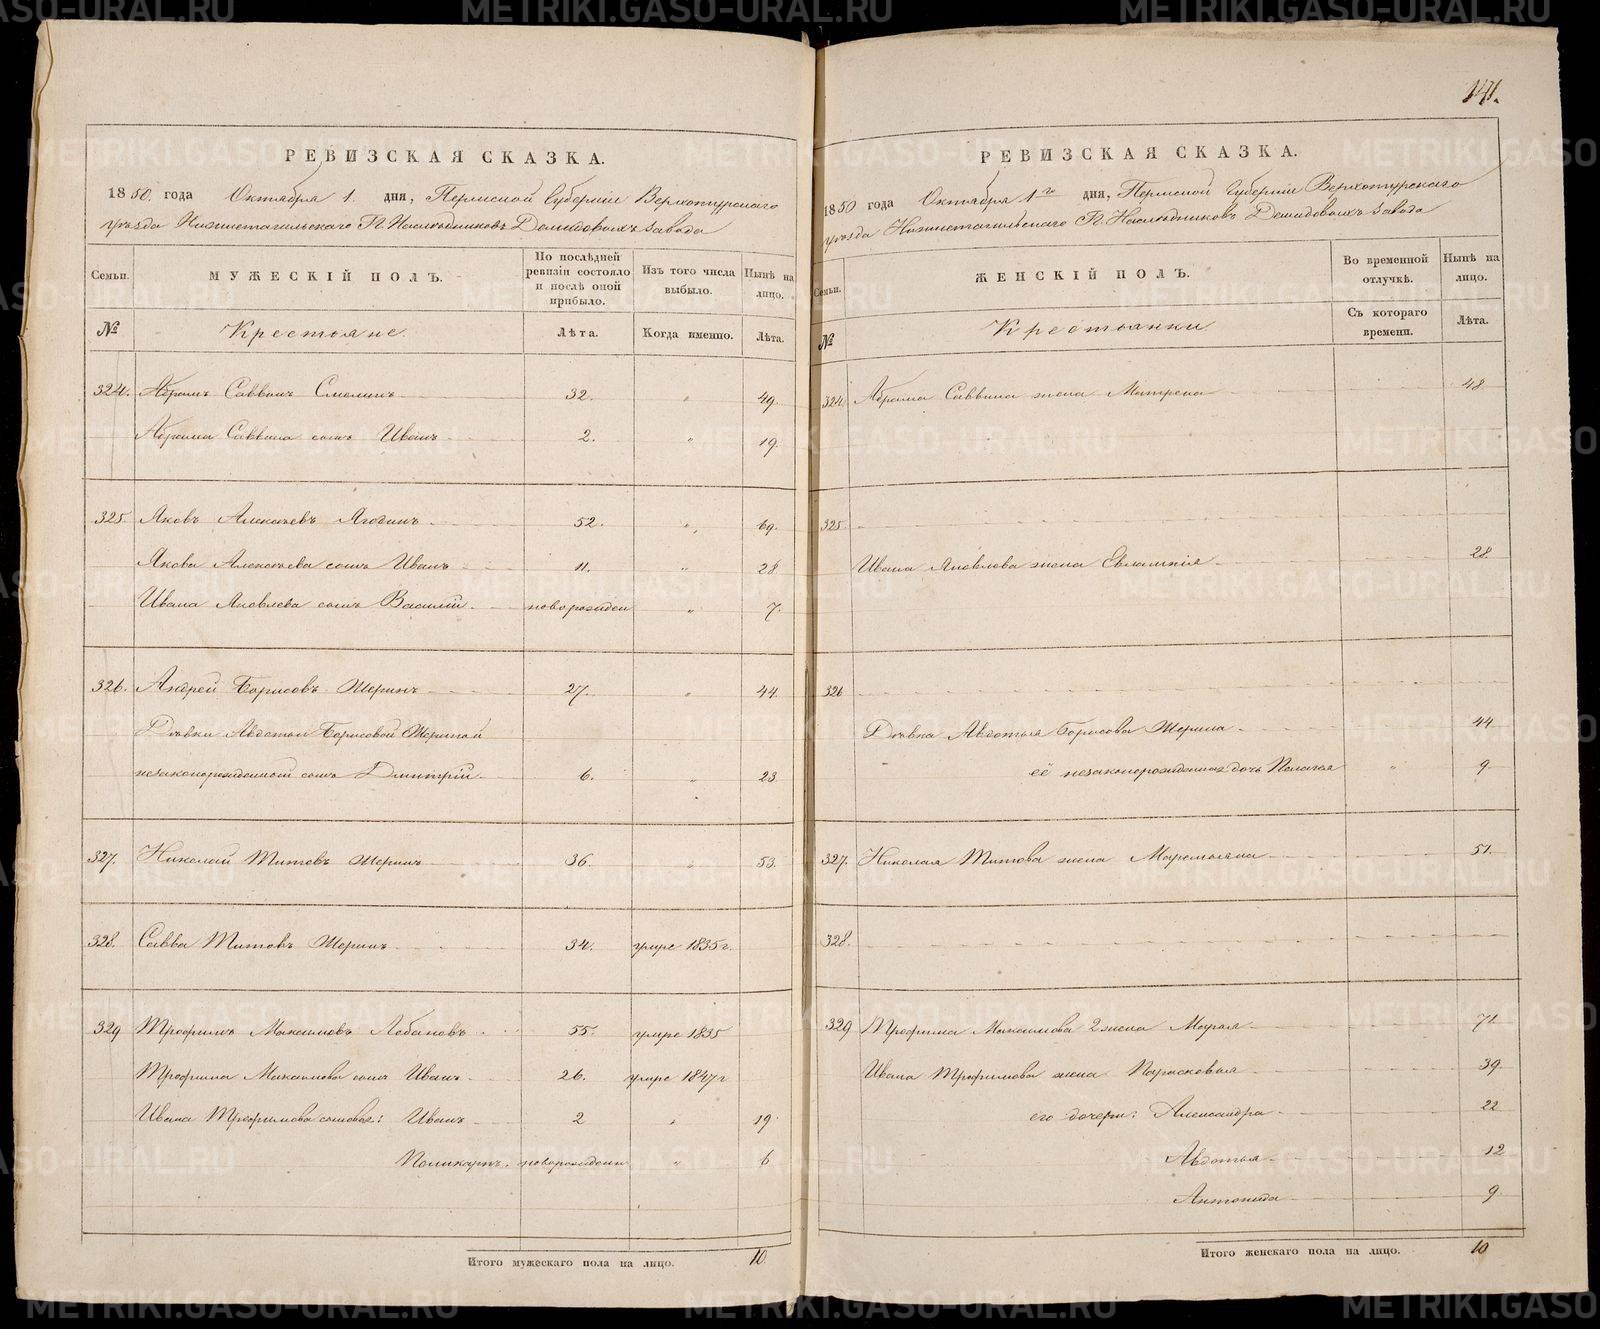 141.
РЕВИЗСКАЯ СКАЗКА.
1850 года Октября 1 дня, Пермской Губерніи Верхотурскаго
уѣзда Нижнетагильскаго Г.г. Наслѣдниковъ Демидовыхъ завода
Семьи. МУЖЕСКІЙ ПОЛЪ. По послѣдней ревизіи состояло и послѣ оной прибыло. Изъ того числа выбыло. Нынѣ на лицо.
№ Крестьяне. Лѣта. Когда именно. Лѣта.
324. Абрамъ Саввинъ 32. " 49.
Абрама Саввина сынъ Иванъ 2. " 19.
325. Яковъ Алексѣевъ Ягодинъ 52. " 69.
Якова Алексѣева сынъ Иванъ 11. " 28
Ивана Яковлева сынъ Василій новорожден " 7.
326. Андрей Борисовъ Шоринъ 27. " 44.
Дѣвки Авдотьи Борисовой Шориной
незаконорожденной сынъ Дмитрій 6. " 23
327. Николай Титовъ Шоринъ 36. " 53.
328. Савва Титовъ Шоринъ 34. умре 1835 г.
329 Трофимъ Максимовъ Лобановъ 55. умре 1835
Трофима Максимова сынъ Иванъ 26. умре 1847 г
Ивана Трофимова сыновья: Иванъ 2 " 19
Поликарпъ. новорожден " 6
Итого мужескаго пола на лицо. 10
РЕВИЗСКАЯ СКАЗКА.
1850 года Октября 1го дня, Пермской Губерніи Верхотурскаго
уѣзда Нижнетагильскаго Г.г. Наслѣдниковъ Демидовыхъ завода
Семьи. ЖЕНСКІЙ ПОЛЪ. Во временной отлучкѣ. Нынѣ на лицо.
№ Крестьянки Съ котораго времени. Лѣта.
324. Абрама Саввина жена Матрена 48
325
Ивана Яковлева жена Евлампія 28.
326
Дѣвка Авдотья Борисова Шорина 44
её незаконорожденная дочь Пелагья " 9
327. Николая Титова жена Маремьяна 51.
328.
329 Трофима Максимова 2 жена Марья 71.
Ивана Трофимова жена Парасковья 39.
его дочери: Александра 22
Авдотья 12
Антонида 9.
Итого женскаго пола на лицо. 10